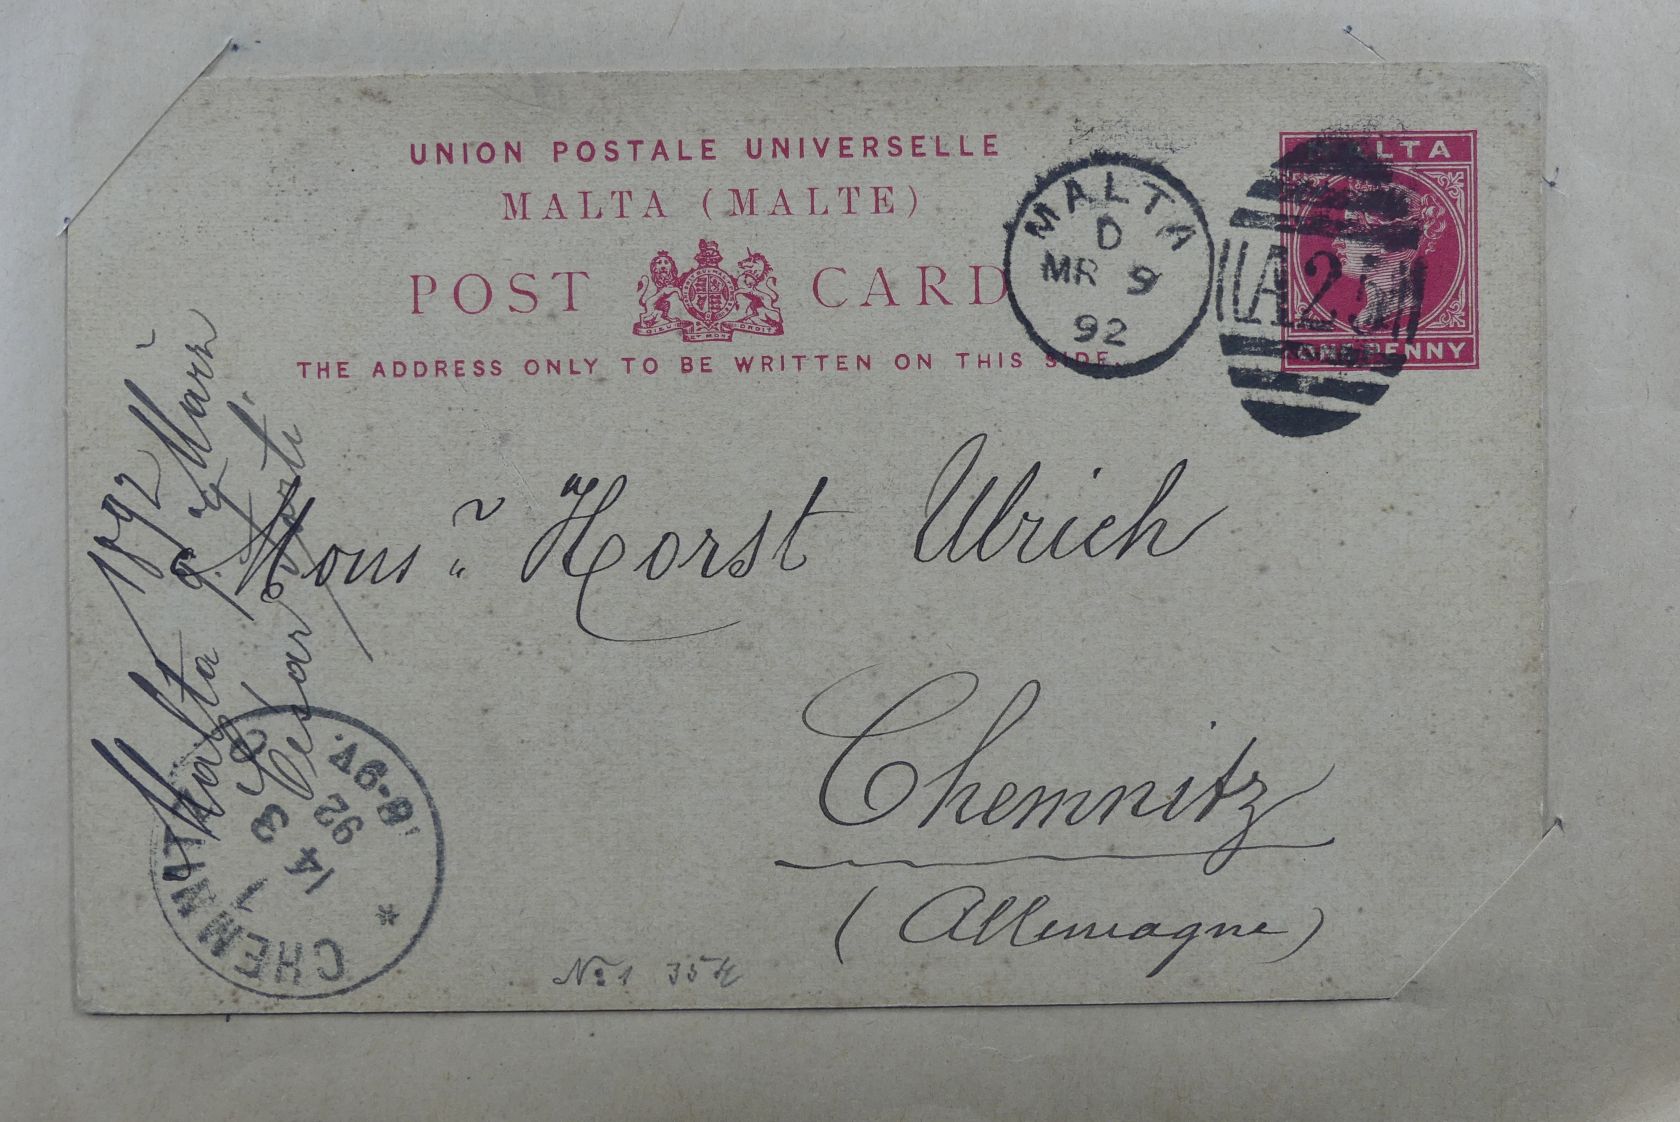 UNION POSTALE UNIVERSELLE
MALTA (MALTE)
POST CARD
DIEU ET MON DROIT
THE ADDRESS ONLY TO BE WRITTEN ON THIS SIDE.
MALTA
D
MR 9
92
A25
MALTA
ONE PENNY
Mons.r Horst Ulrich
Chemnitz
(Allemagne)
Malta 1892
9. Mars
Cesar
CHEMNITZ
1
14
3
92
8-9V.
*
No 1 35